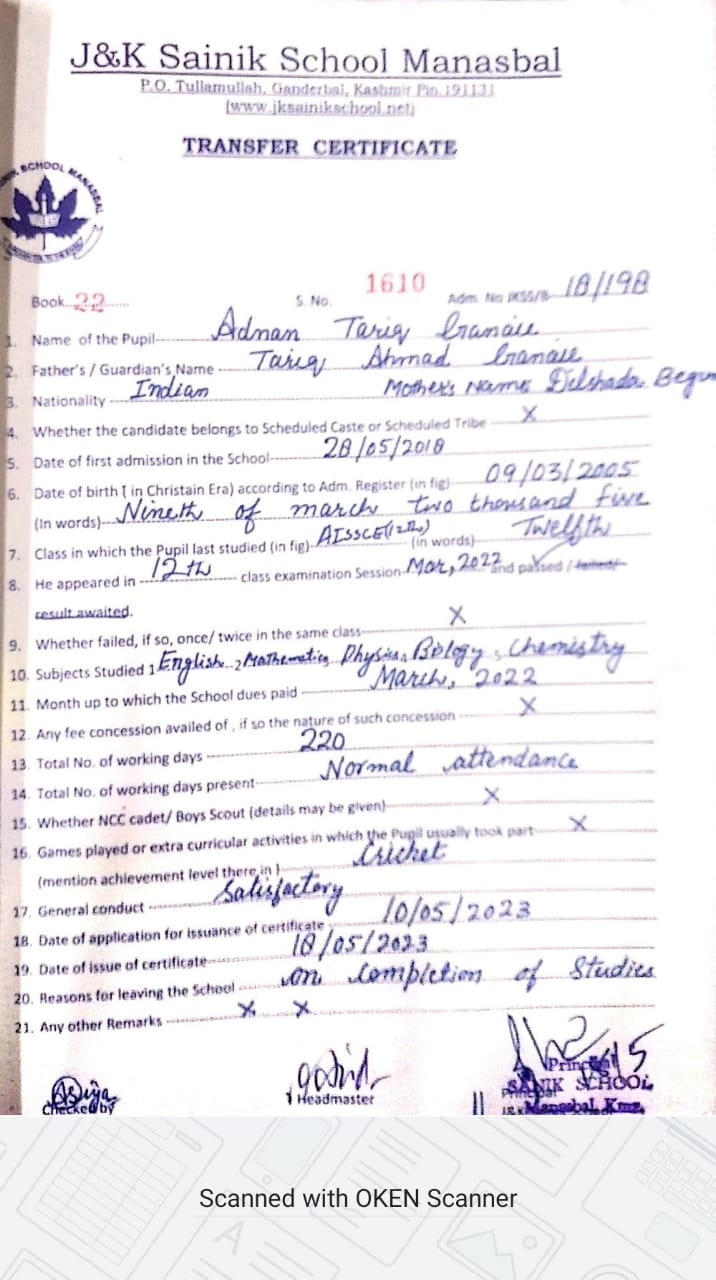 J&K Sainik School Manasbal
P.O. Tullamullah, Ganderbal, Kashmir Pin.191131
(www.jksainikschool.net)
TRANSFER CERTIFICATE
SCHOOL MANASBAL
Book 22 S. No. 1610 Adm. No JKSS/B- 18/198
1. Name of the Pupil Adnan Tariq Ganaie
2. Father's / Guardian's Name Tariq Ahmad Ganaie
3. Nationality Indian Mother's Name Dilshada Begum
4. Whether the candidate belongs to Scheduled Caste or Scheduled Tribe X
5. Date of first admission in the School 28/05/2018
6. Date of birth ( in Christain Era) according to Adm. Register (in fig) 09/03/2005
(In words) Nineth of march two thousand five
7. Class in which the Pupil last studied (in fig) AISSCE(12th) (in words) Twelfth
8. He appeared in 12th class examination Session Mar, 2022 and passed / failed/
result awaited.
9. Whether failed, if so, once/ twice in the same class X
10. Subjects Studied 1 English 2 Mathematics Physics, Biology, Chemistry
11. Month up to which the School dues paid March, 2022
12. Any fee concession availed of , if so the nature of such concession X
13. Total No. of working days 220
14. Total No. of working days present Normal attendance
15. Whether NCC cadet/ Boys Scout (details may be given) X
16. Games played or extra curricular activities in which the Pupil usually took part X
(mention achievement level there in ) Cricket
17. General conduct Satisfactory
18. Date of application for issuance of certificate 10/05/2023
19. Date of issue of certificate 18/05/2023
20. Reasons for leaving the School on completion of Studies
21. Any other Remarks X X
Checked by Headmaster Principal
SAINIK SCHOOL
Manasbal, Kmr.
Scanned with OKEN Scanner